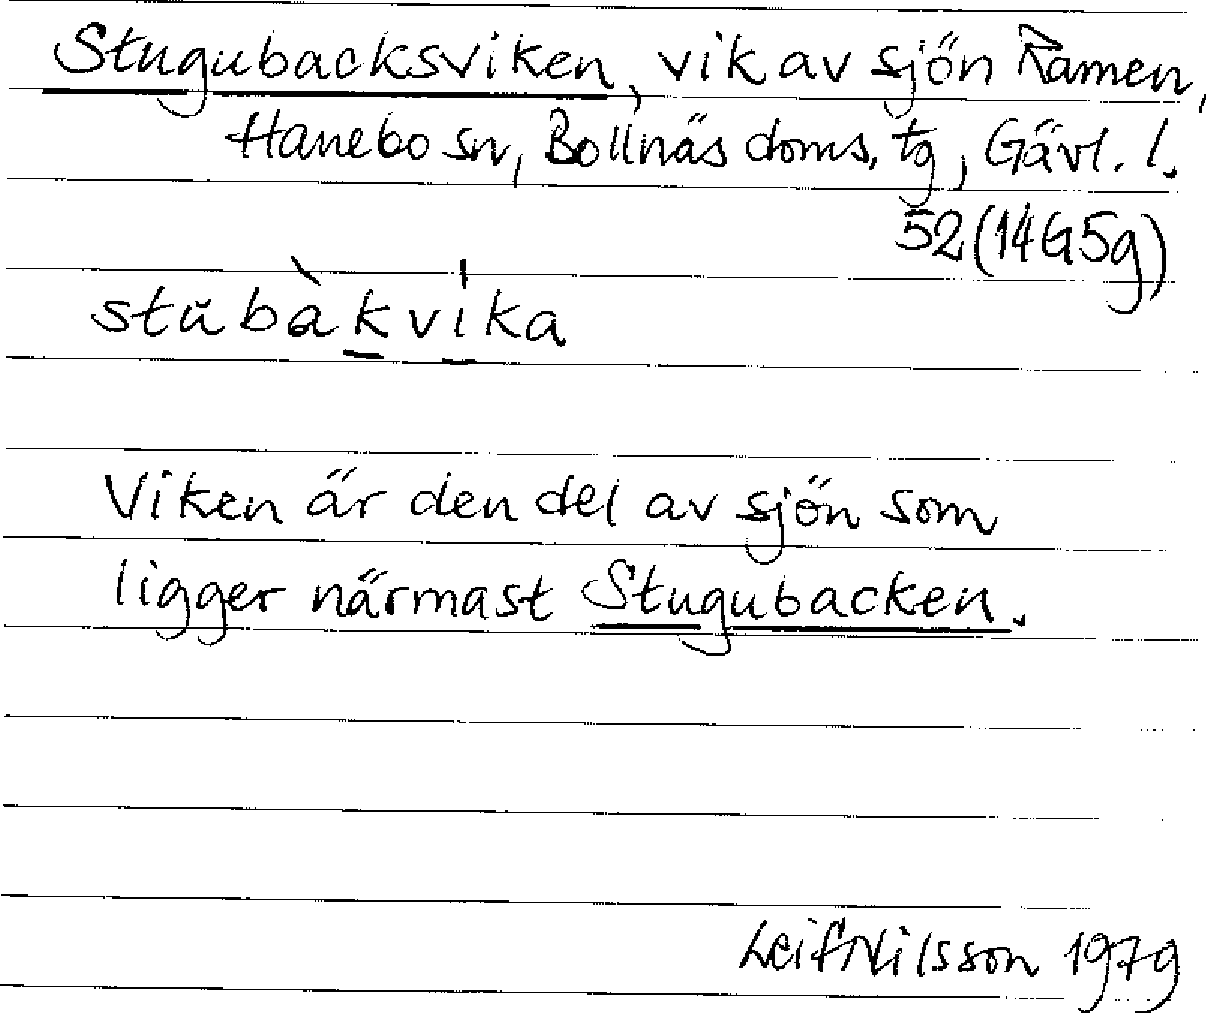 Stugubacksviken, vik av sjön Ramen,
Hanebo sn, Bollnäs doms. tg, Gävl. l.
52 (14G5g)
stŭbàkvika
Viken är den del av sjön som
ligger närmast Stugubacken.
Leif Nilsson 1979